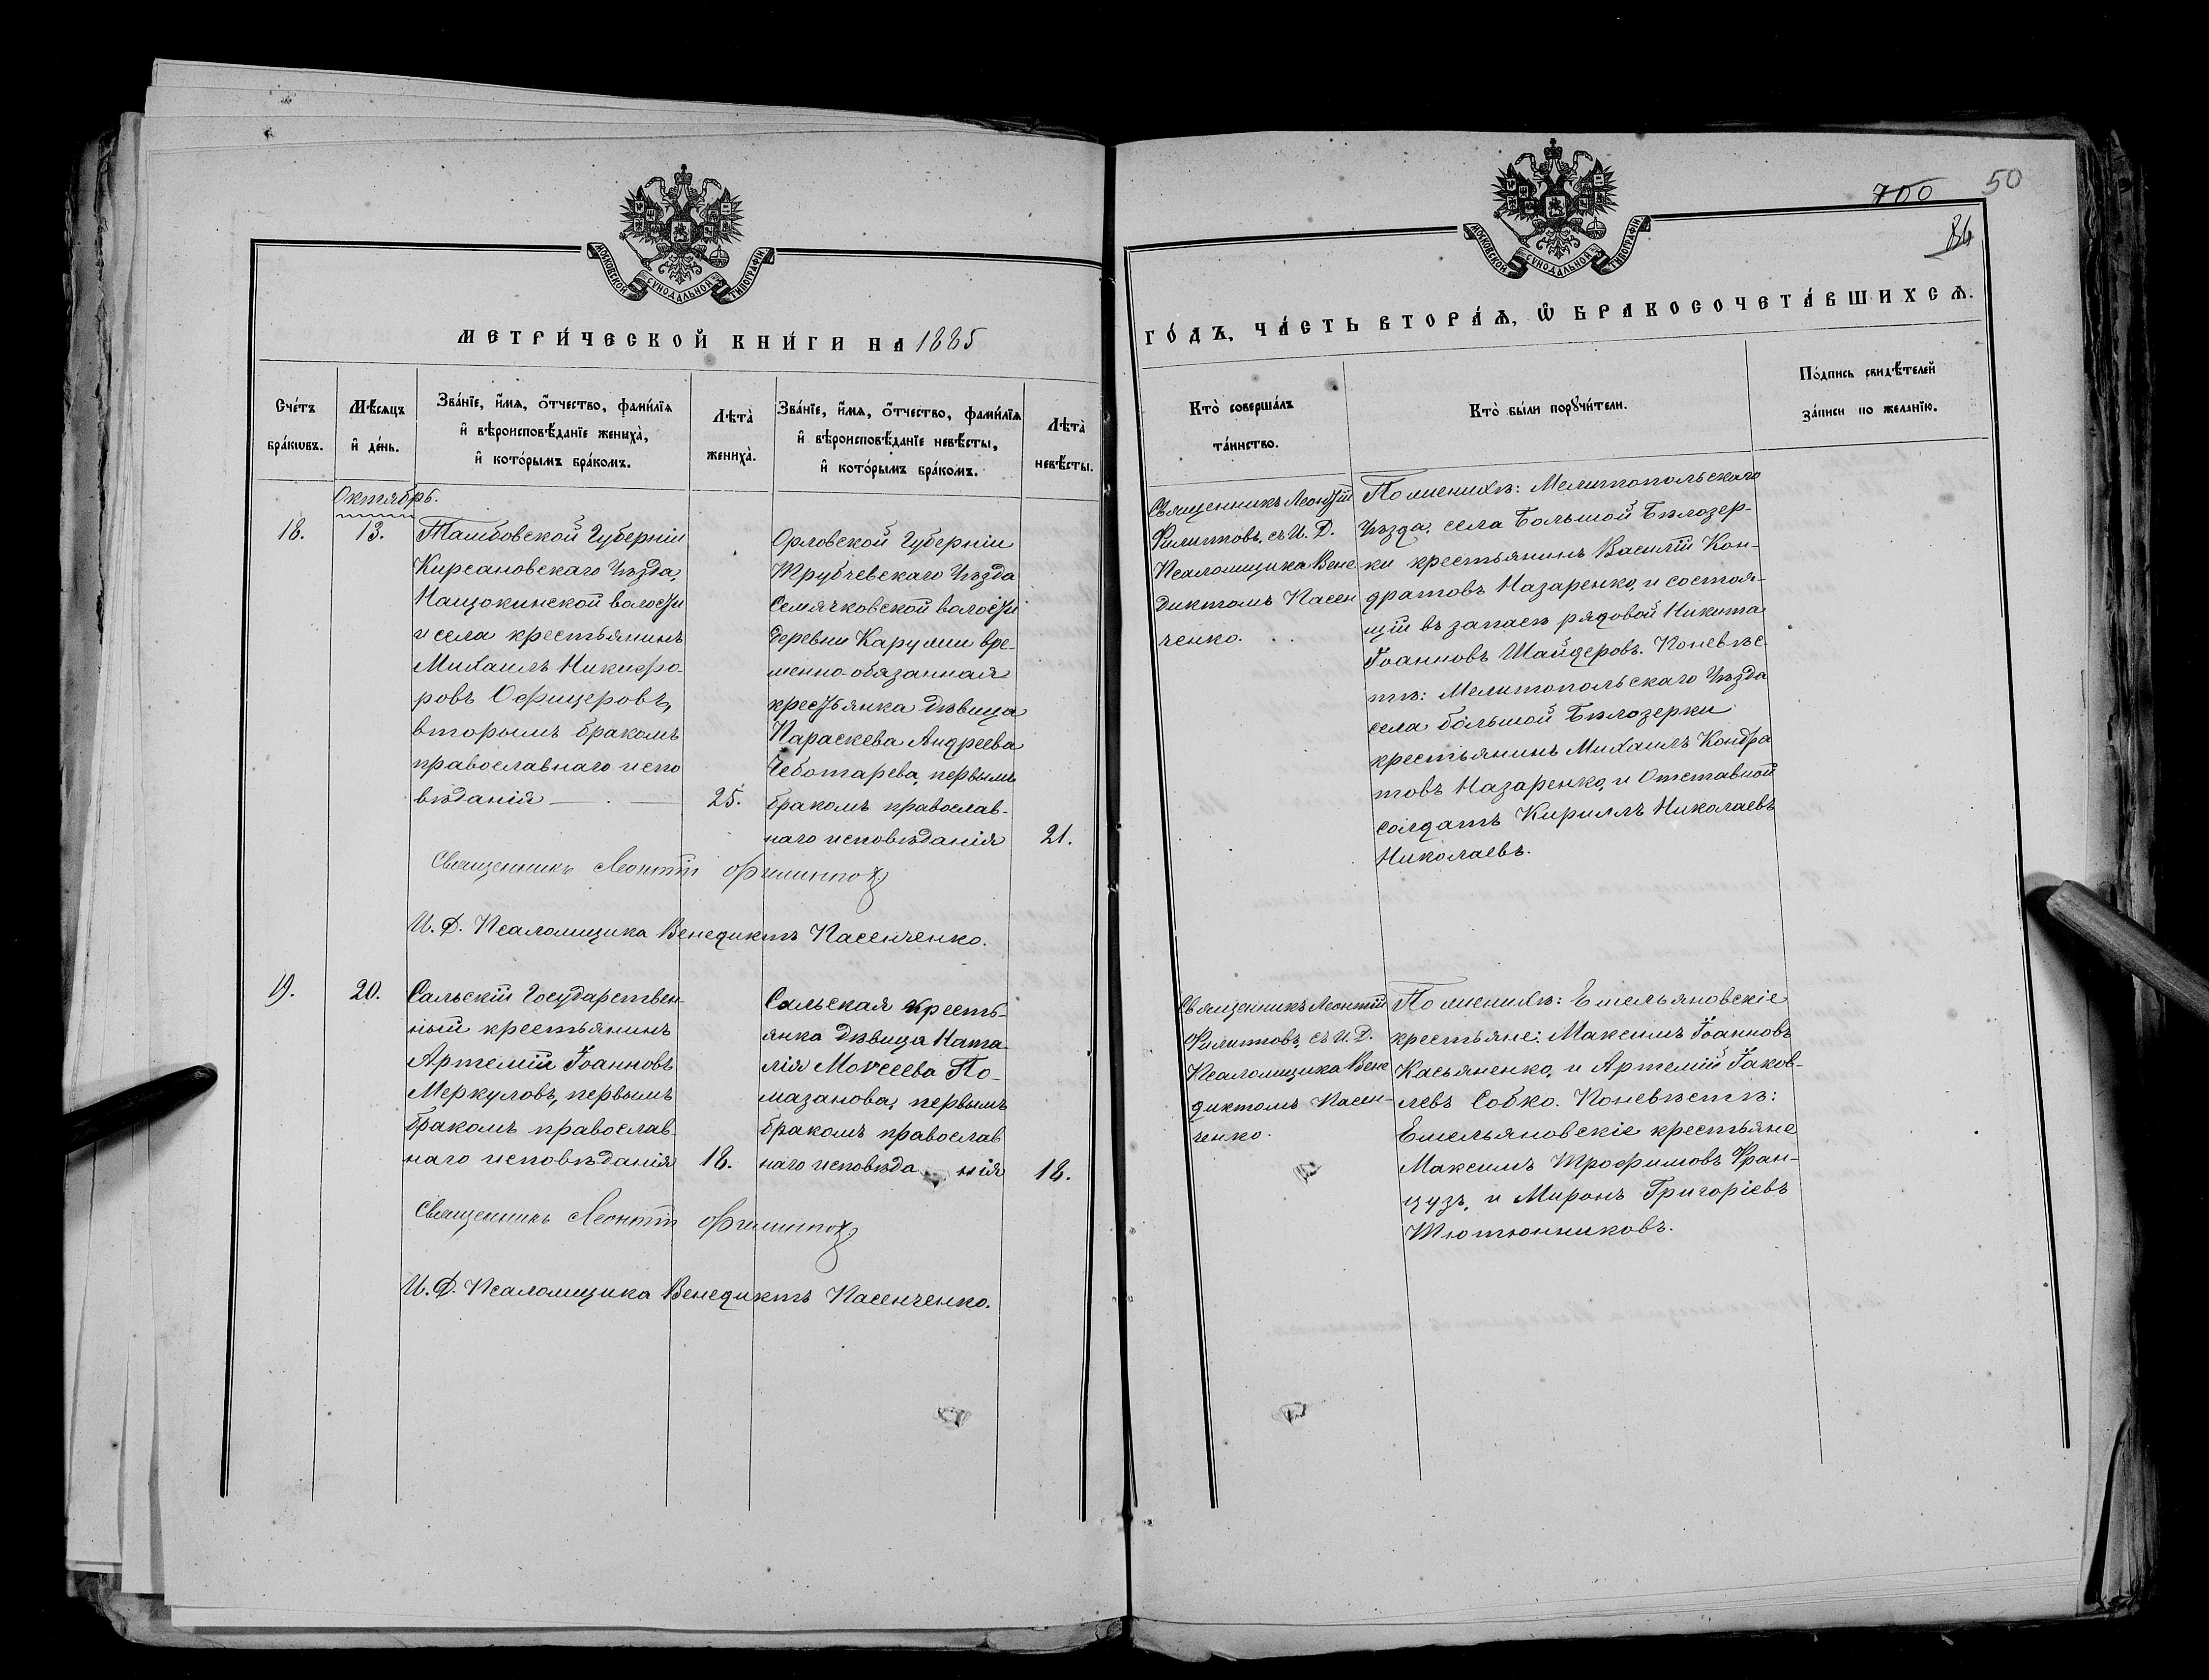 МОСКОВСКОЙ СѴНОДАЛЬНОЙ ТИПОГРАФІИ
МЕТРИ́ЧЕСКОЙ КНИ́ГИ НА 1885
Сче́тъ
бра́кωвъ.
Мѣ́сяцъ
и҆ де́нь.
Зва́нїе, и҆́мя, ѻ҆́тчество, фами́лїя
и҆ вѣроисповѣ́данїе жениха̀,
и҆ кото́рымъ бра́комъ.
Лѣта̀
жениха̀.
Зва́нїе, и҆́мя, ѻ҆́тчество, фами́лїя
и҆ вѣроисповѣ́данїе невѣ́сты,
и҆ кото́рымъ бра́комъ.
Лѣта̀
невѣ́сты.
Октябрь.
18.
13.
Тамбовской Губерніи
Кирсановскаго Уѣзда,
Нащокинской волости
и села крестьянинъ
Михаилъ Никифо-
ровъ Офицеровъ,
вторымъ бракомъ
православнаго испо
вѣданія — . —
25.
Орловской Губерніи
Трубчевскаго Уѣзда
Семячковской волости
деревни Карушии вре-
менно-обязанная
крестьянка дѣвица
Параскева Андреева
Чеботарева, первымъ
бракомъ православ-
наго исповѣданія
21.
Священникъ Леонтій Филиппов
И. Д. Псаломщика Венедиктъ Пасенченко.
19.
20.
Сальскій Государствен-
ный крестьянинъ
Артемій Іоанновъ
Меркуловъ, первымъ
бракомъ православ
наго исповѣданія
18.
Сальская кресть-
янка дѣвица Ната-
лія Моѵсеева По-
мазанова, первымъ
бракомъ православ
наго исповѣда нія
18.
Священникъ Леонтій Филиппов
И. Д. Псаломщика Венедиктъ Пасенченко.
МОСКОВСКОЙ СѴНОДАЛЬНОЙ ТИПОГРАФІИ
700 50
84
ГО́ДЪ, ЧА́СТЬ ВТОРА́Ѧ, Ѽ БРАКОСОЧЕТА́ВШИХСѦ.
Кто̀ соверша́лъ
та́инство.
Кто̀ бы́ли порꙋчи́тели.
По́дпись свидѣ́телей
за́писи по жела́нїю.
Священникъ Леонтій
Филипповъ, съ И. Д.
Псаломщика Вене
диктомъ Пасен
ченко.
По женихѣ: Мелитопольскаго
Уѣзда, села Большой Бѣлозер-
ки крестьянинъ Василій Кон-
дратовъ Назаренко, и состоя-
щій въ запасѣ рядовой Никита
Іоанновъ Шайдеровъ. По невѣс-
тѣ: Мелитопольскаго Уѣзда
села большой Бѣлозерки
крестьянинъ Михаилъ Кондра
товъ Назаренко, и Отставной
солдатъ Кириллъ Николаевъ
Николаевъ.
Священникъ Леонтій
Филипповъ, съ И. Д.
Псаломщика Вене
диктомъ Пасен-
ченко.
По женихѣ: Емельяновскіе
крестьяне: Максимъ Іоанновъ
Касьяненко, и Артемій Іаков-
левъ Собко. По невѣстѣ:
Емельяновскіе крестьяне
Максимъ Трофимовъ Фран-
цузъ, и Миронъ Григоріевъ
Тютюнниковъ.